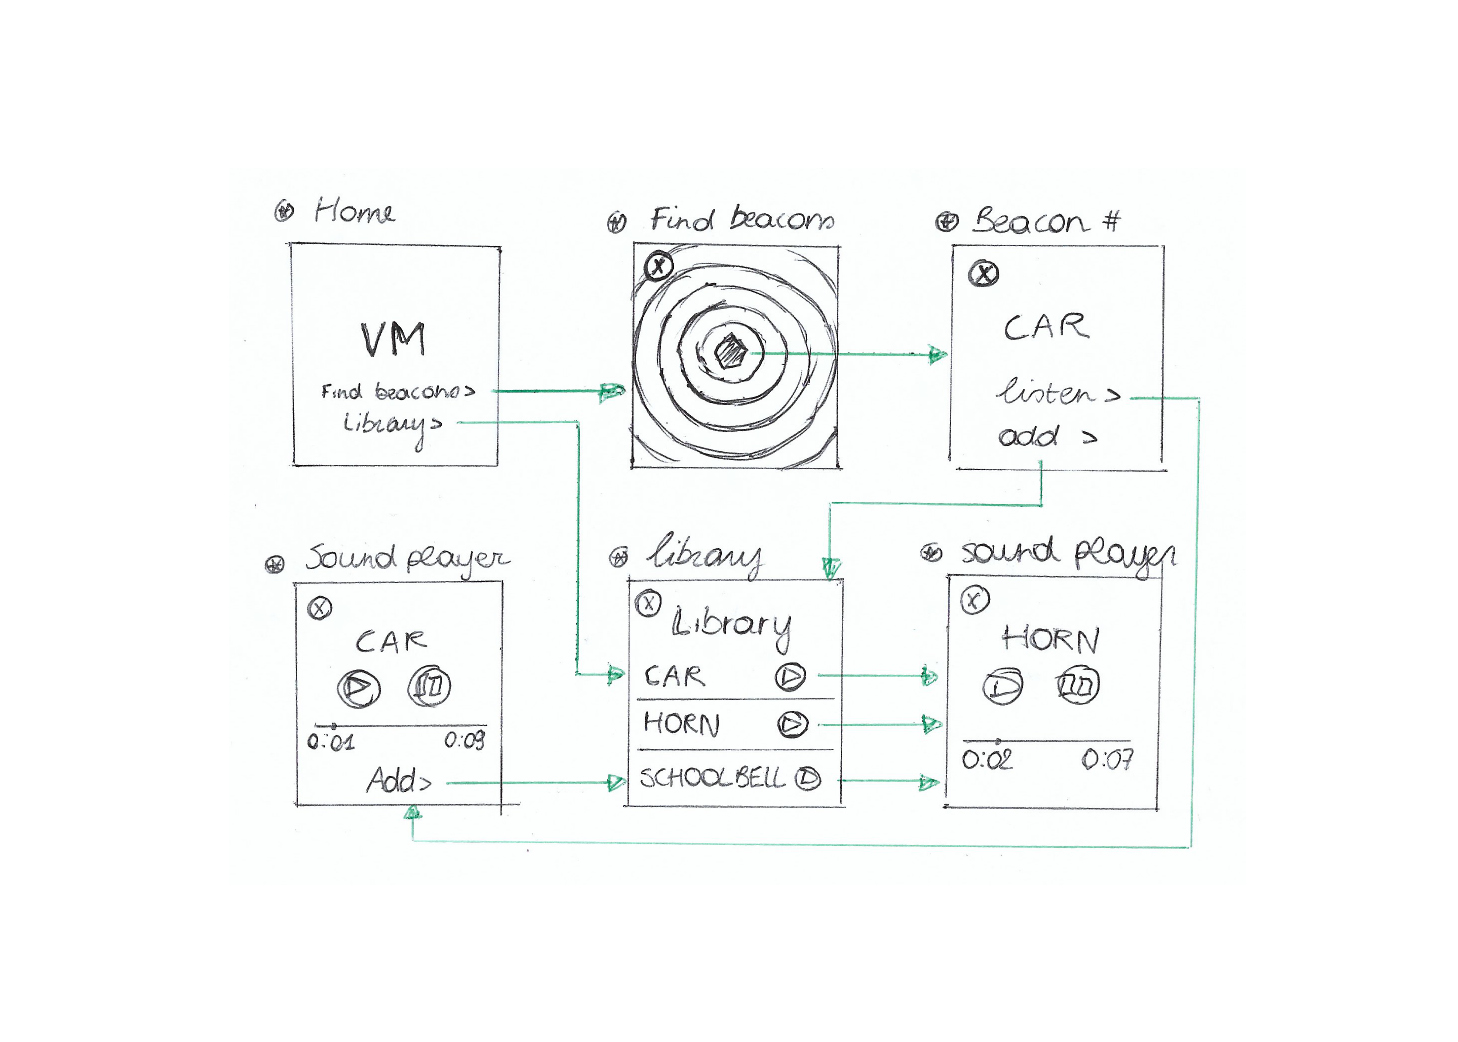 Home
VM
Find beacons>
Library>
Find beacons
X
Beacon #
X
CAR
listen >
add >
Sound player
X
CAR
0:01 0:09
Add>
library
X
Library
CAR
HORN
SCHOOLBELL
sound player
X
HORN
0:02 0:07